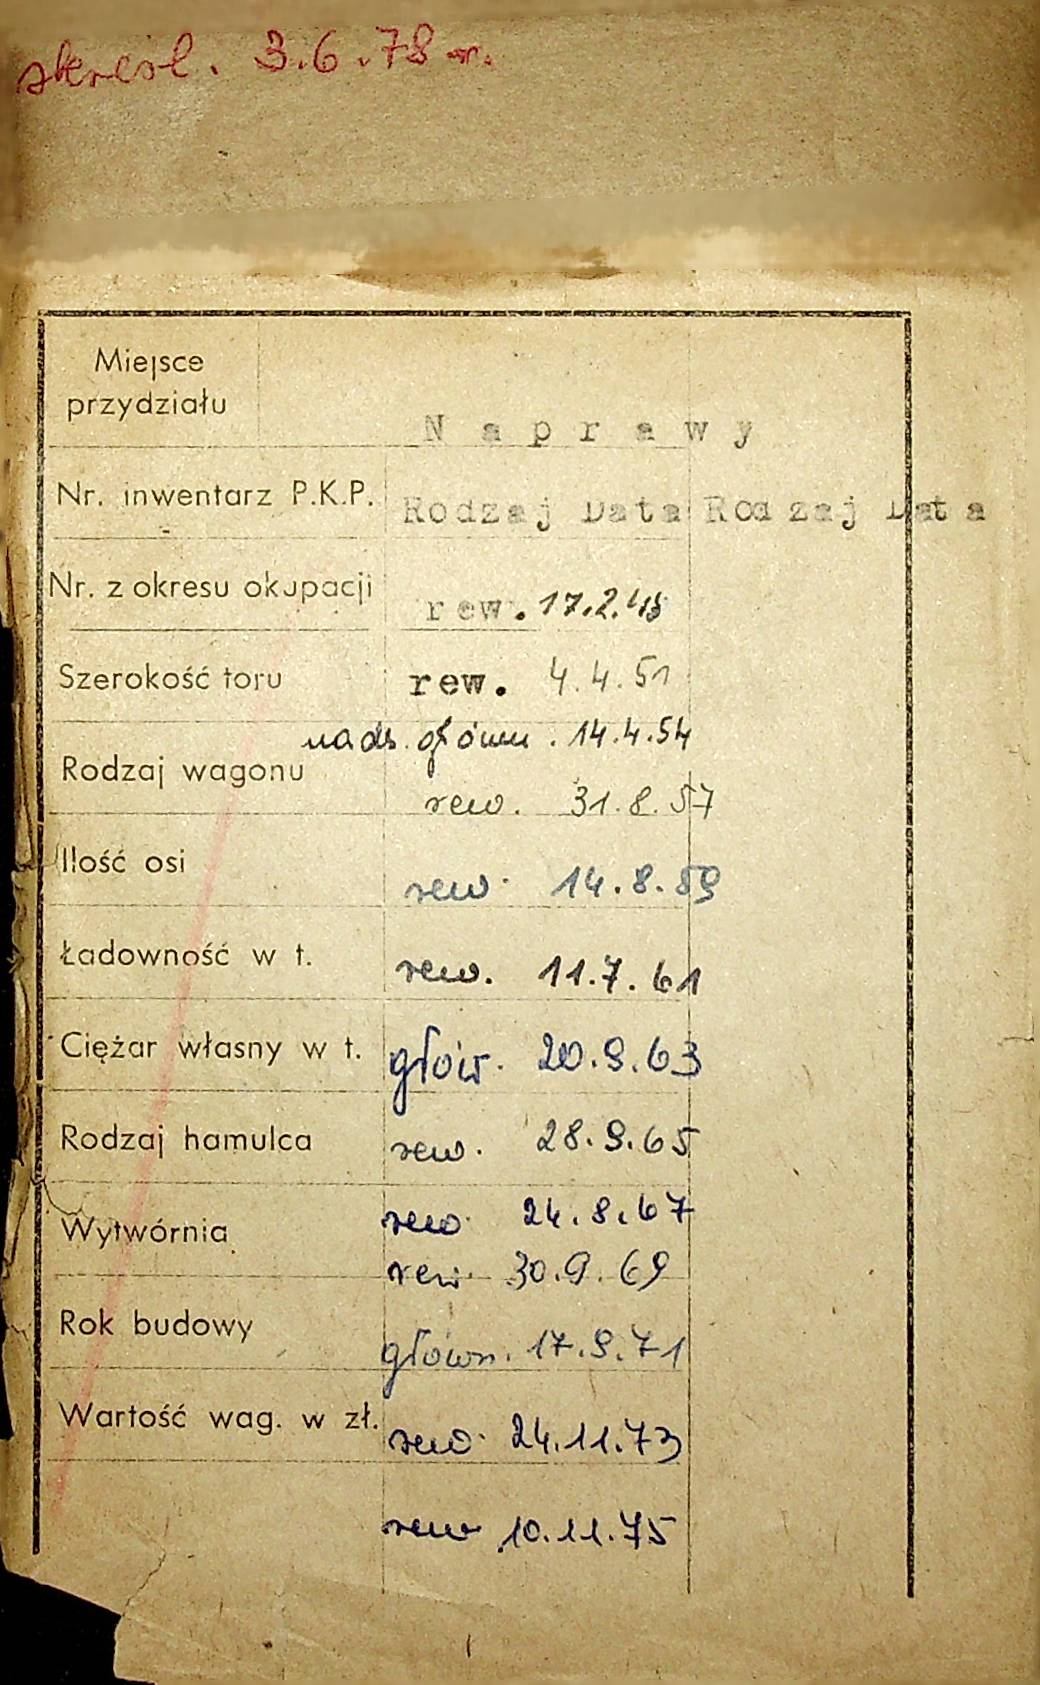 skreśl. 3.6.78 r.
Miejsce
przydziału
Naprawy
Nr. inwentarz P.K.P. Rodzaj Data Rodzaj Data
Nr. z okresu okupacji rew. 17.2.48
Szerokość toru rew. 4.4.51
nads. główn. 14.4.54
Rodzaj wagonu
rew. 31.8.57
Ilość osi rew. 14.8.59
Ładowność w t. rew. 11.7.61
Ciężar własny w t. głów. 20.9.63
Rodzaj hamulca rew. 28.9.65
Wytwórnia rew. 24.8.67
rew. 30.9.69
Rok budowy główn. 17.9.71
Wartość wag. w zł. rew. 24.11.73
rew 10.11.75